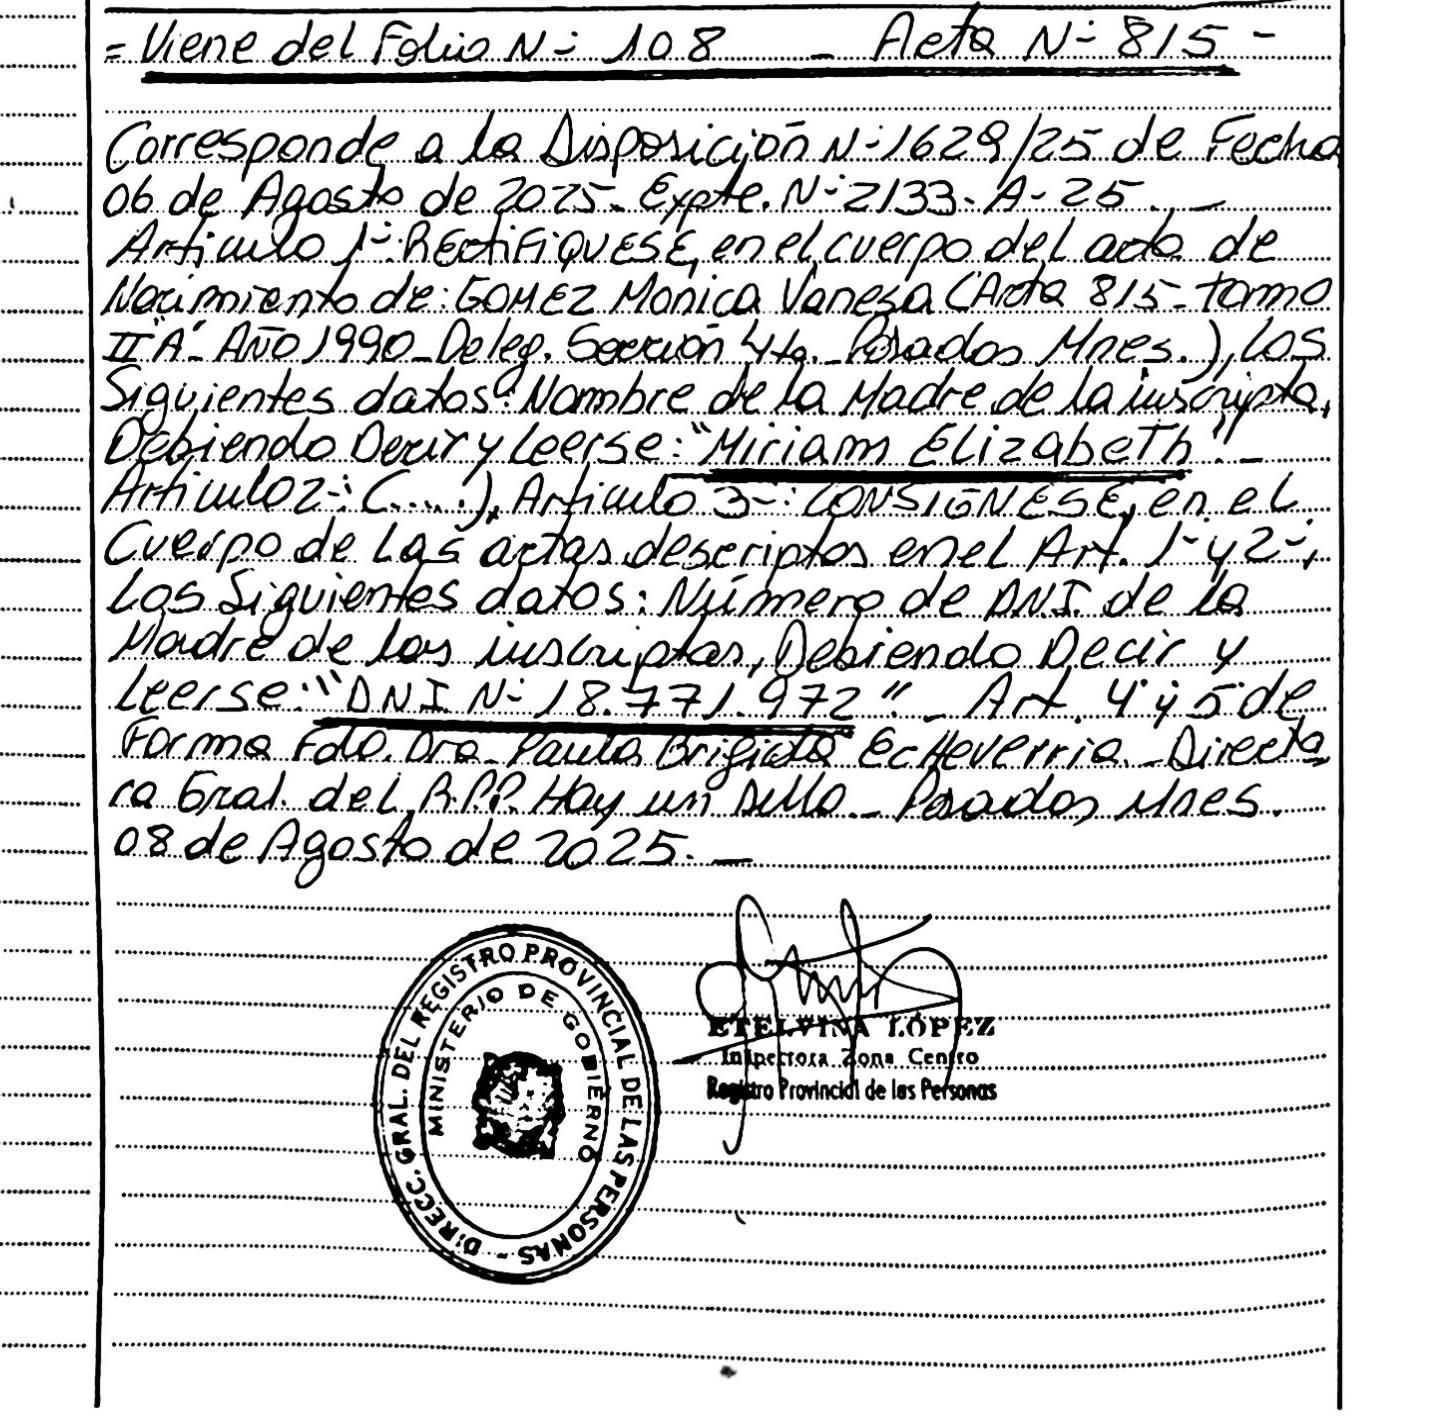 = Viene del Folio N-: 108 - Acta N-: 815 -
Corresponde a la Disposición N-: 1629/25 de Fecha
06 de Agosto de 2025- Expte. N-: 2133- A- 25 . _
Articulo 1-: RECTIFIQUESE, en el cuerpo del acta de
Nacimiento de: GOMEZ Monica Vanesa (Acta 815- tomo
II "A"- AÑO 1990- Deleg. Sección 4ta.- Posadas Mnes.), los
Siguientes datos: Nombre de la Madre de la inscripta,
Debiendo Decir y Leerse: "Miriam ElizabeTh". _
Articulo 2-: (.....), Articulo 3-: CONSIGNESE, en el
Cuerpo de Las actas descriptas en el Art. 1- y 2-,
Los Siguientes datos: Número de DNI. de la
Madre de las inscriptas, Debiendo Decir y
Leerse: "DNI N-: 18.771.972" _ Art. 4- y 5- de
Forma Fdo. Dra. Paula Brigida Echeverria.- Directo
ra Gral. del R.P.P. Hay un sello.- Posadas, Mnes.
08 de Agosto de 2025. _
DIRECC. GRAL. DEL REGISTRO PROVINCIAL DE LAS PERSONAS -
MINISTERIO DE GOBIERNO
ETELVINA LÓPEZ
Inspectora Zona Centro
Registro Provincial de las Personas